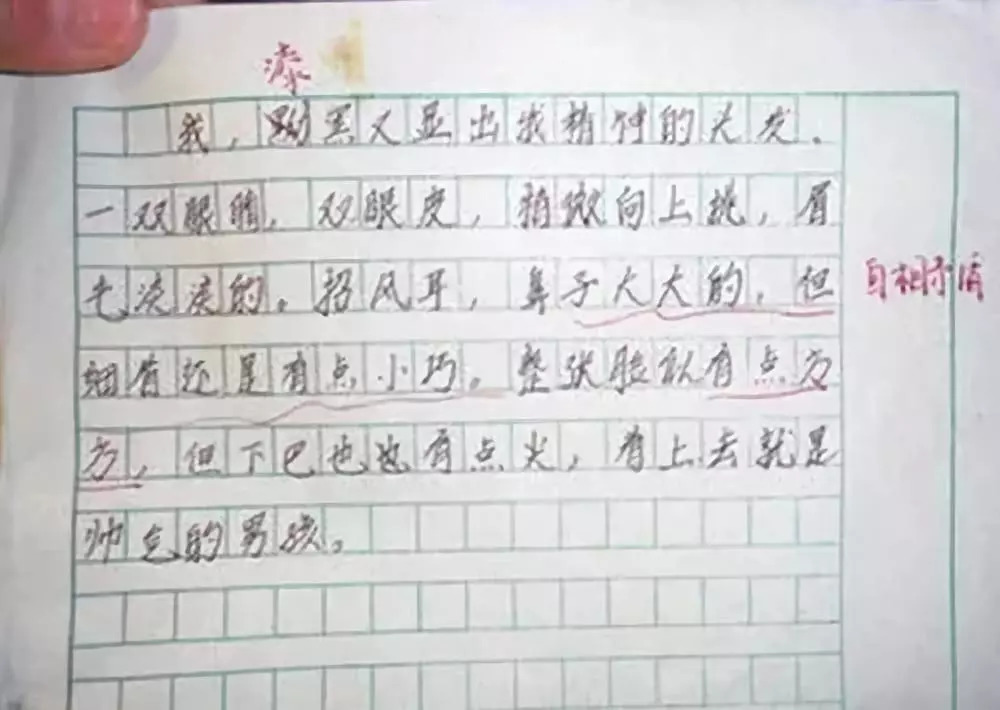 漆
我，黝黑又显出我精神的头发．
一双眼睛，双眼皮，稍微向上挑，眉
毛淡淡的。招风耳，鼻子大大的，但
细看还是有点小巧。整张脸似有点方
方，但下巴也也有点尖，看上去就是
帅气的男孩。
自相矛盾